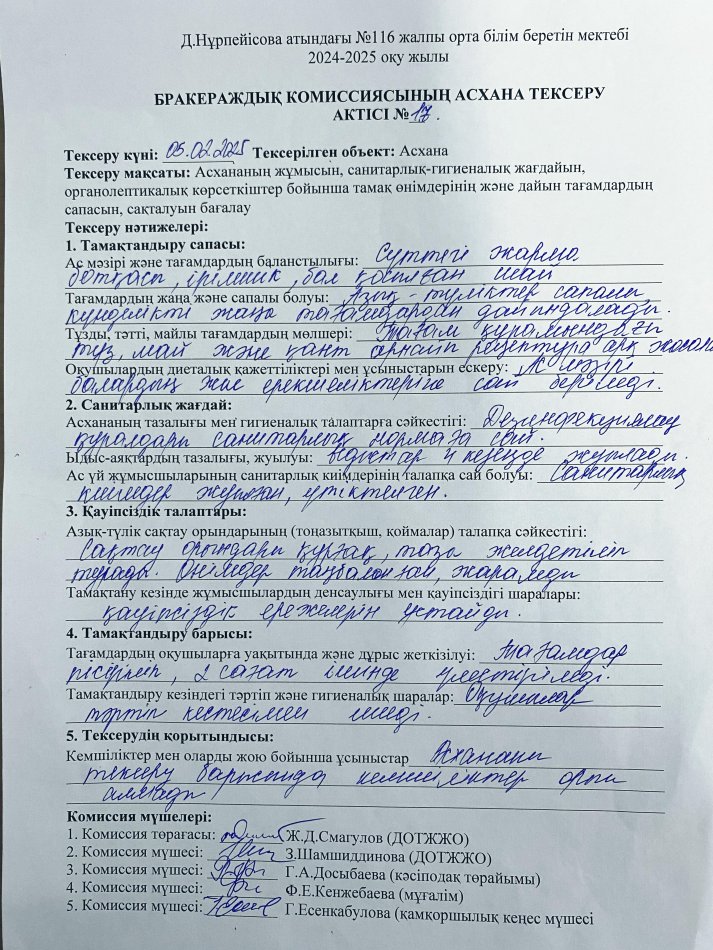 Д.Нұрпейісова атындағы №116 жалпы орта білім беретін мектебі
2024-2025 оқу жылы
БРАКЕРАЖДЫҚ КОМИССИЯСЫНЫҢ АСХАНА ТЕКСЕРУ
АКТІСІ № 17.
Тексеру күні: 05.02.2025 Тексерілген объект: Асхана
Тексеру мақсаты: Асхананың жұмысын, санитарлық-гигиеналық жағдайын,
органолептикалық көрсеткіштер бойынша тамақ өнімдерінің және дайын тағамдардың
сапасын, сақталуын бағалау
Тексеру нәтижелері:
1. Тамақтандыру сапасы:
Ас мәзірі және тағамдардың баланстылығы: Сүттегі жарма
ботқасы, ірімшік, бал қосылған шай
Тағамдардың жаңа және сапалы болуы: Азық-түліктер сапалы,
күнделікті жаңа тағамдардан дайындалады.
Тұзды, тәтті, майлы тағамдардың мөлшері: Тағам құрамындағы
тұз, май және қант арнайы рецептура арқ
Оқушылардың диеталық қажеттіліктері мен ұсыныстарын ескеру: Ас мәзірі
балардың жас ерекшеліктеріне сай беріледі.
2. Санитарлық жағдай:
Асхананың тазалығы мен гигиеналық талаптарға сәйкестігі: Дезинфекциялау
құралдары санитарлық нормаға сай.
Ыдыс-аяқтардың тазалығы, жуылуы: ыдыстар 4 кезеңде жуылады.
Ас үй жұмысшыларының санитарлық киімдерінің талапқа сай болуы: Санитарлық
киімдер жуылған, үтіктелген.
3. Қауіпсіздік талаптары:
Азық-түлік сақтау орындарының (тоңазытқыш, қоймалар) талапқа сәйкестігі:
Сақтау орындары құрғақ, таза желдетіліп
тұрады. Өнімдер таңбаланған, жарамды
Тамақтану кезінде жұмысшылардың денсаулығы мен қауіпсіздігі шаралары:
қауіпсіздік ережелерін ұстайды.
4. Тамақтандыру барысы:
Тағамдардың оқушыларға уақытында және дұрыс жеткізілуі: Тағамдар
пісіріліп, 2 сағат ішінде үлестіріледі.
Тамақтандыру кезіндегі тәртіп және гигиеналық шаралар: Оқушылар
тәртіп кестесімен ішеді.
5. Тексерудің қорытындысы:
Кемшіліктер мен оларды жою бойынша ұсыныстар Асхананы
тексеру барысында кемшіліктер орын
алмады
Комиссия мүшелері:
1. Комиссия төрағасы: Ж.Д.Смагулов (ДОТЖЖО)
2. Комиссия мүшесі: З.Шамшиддинова (ДОТЖЖО)
3. Комиссия мүшесі: Г.А.Досыбаева (кәсіподақ төрайымы)
4. Комиссия мүшесі: Ф.Е.Кенжебаева (мұғалім)
5. Комиссия мүшесі: Г.Есенкабулова (қамқоршылық кеңес мүшесі